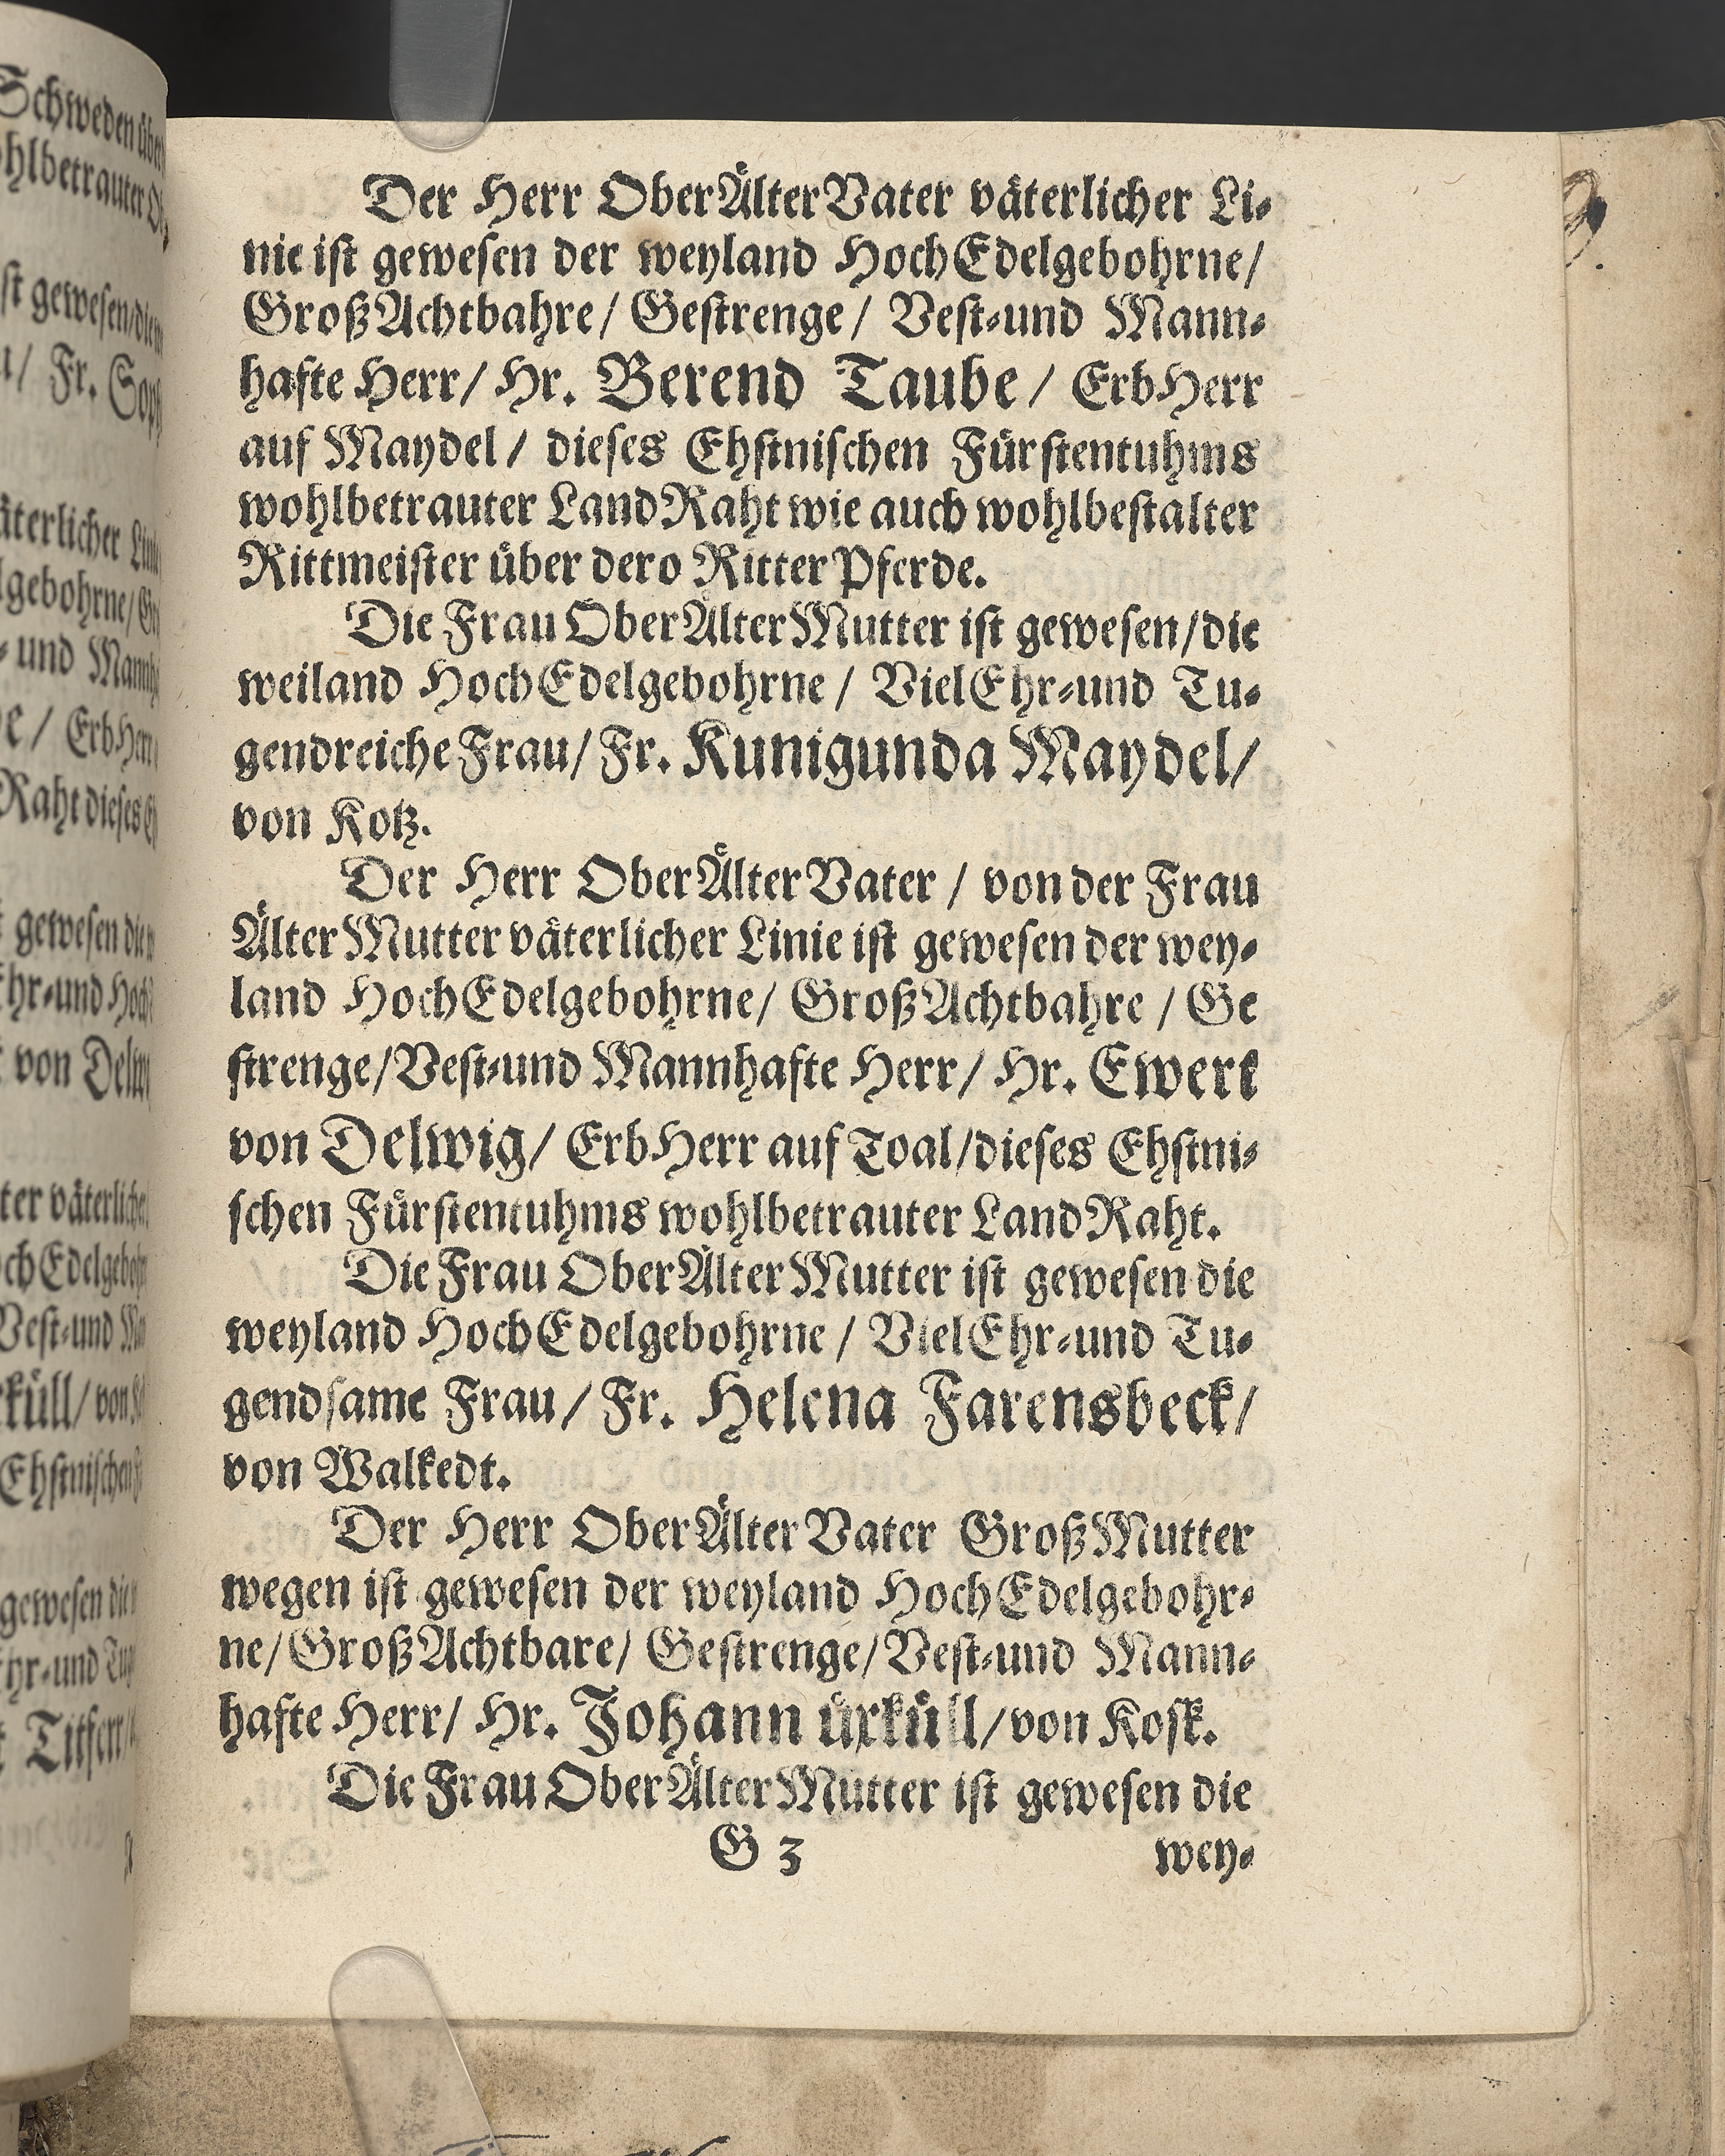 Der Herr OberÄlterVater väterlicher Li-
nie ist gewesen der weyland HochEdelgebohrne/
GroßAchtbahre/ Gestrenge/ Vest-und Mann-
hafte Herr/ Hr. Berend Taube/ ErbHerr
auf Maydel/ dieses Ehstnischen Fürstentuhms
wohlbetrauter LandRaht wie auch wohlbestalter
Rittmeister über dero RitterPferde.
Die Frau OberÄlterMutter ist gewesen/die
weiland HochEdelgebohrne/ VielEhr-und Tu-
gendreiche Frau/ Fr. Kunigunda Maydel/
von Kotz.
Der Herr OberÄlterVater/ von der Frau
ÄlterMutter väterlicher Linie ist gewesen der wey-
land HochEdelgebohrne/ GroßAchtbahre/ Ge
strenge/Vest-und Mannhafte Herr/ Hr. Ewert
von Delwig/ ErbHerr auf Toal/dieses Ehstni-
schen Fürstentuhms wohlbetrauter LandRaht.
Die Frau OberÄlterMutter ist gewesen die
weyland HochEdelgebohrne/ VielEhr-und Tu-
gendsame Frau/ Fr. Helena Farensbeck/
von Walkedt.
Der Herr OberÄlterVater GroßMutter
wegen ist gewesen der weyland HochEdelgebohr-
ne/GroßAchtbare/ Gestrenge/Vest-und Mann-
hafte Herr/ Hr. Johann ürküll/von Kosk.
Die Frau OberÄlterMutter ist gewesen die
G 3 wey-